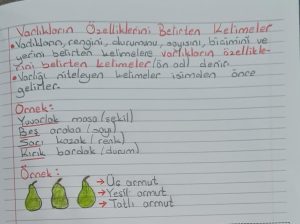 Varlıkların Özelliklerini Belirten Kelimeler
• Varlıkların, rengini, durumunu, sayısını, biçimini ve
yerini belirten kelimelere varlıkların özellikle-
rini belirten kelimeler (ön ad) denir.
• Varlığı niteleyen kelimeler isimden önce
gelirler.
Örnek:
Yuvarlak masa (şekil)
Beş araba (sayı)
Sarı kazak (renk)
Kırık bardak (durum)
Örnek:
→ Üç armut
→ Yeşil armut
→ Tatlı armut